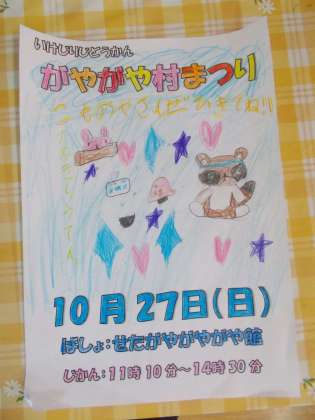 いけじりじどうかん
がやがや村まつり
10月27日(日)
ばしょ:せたがやがやがや館
じかん:11時10分〜14時30分